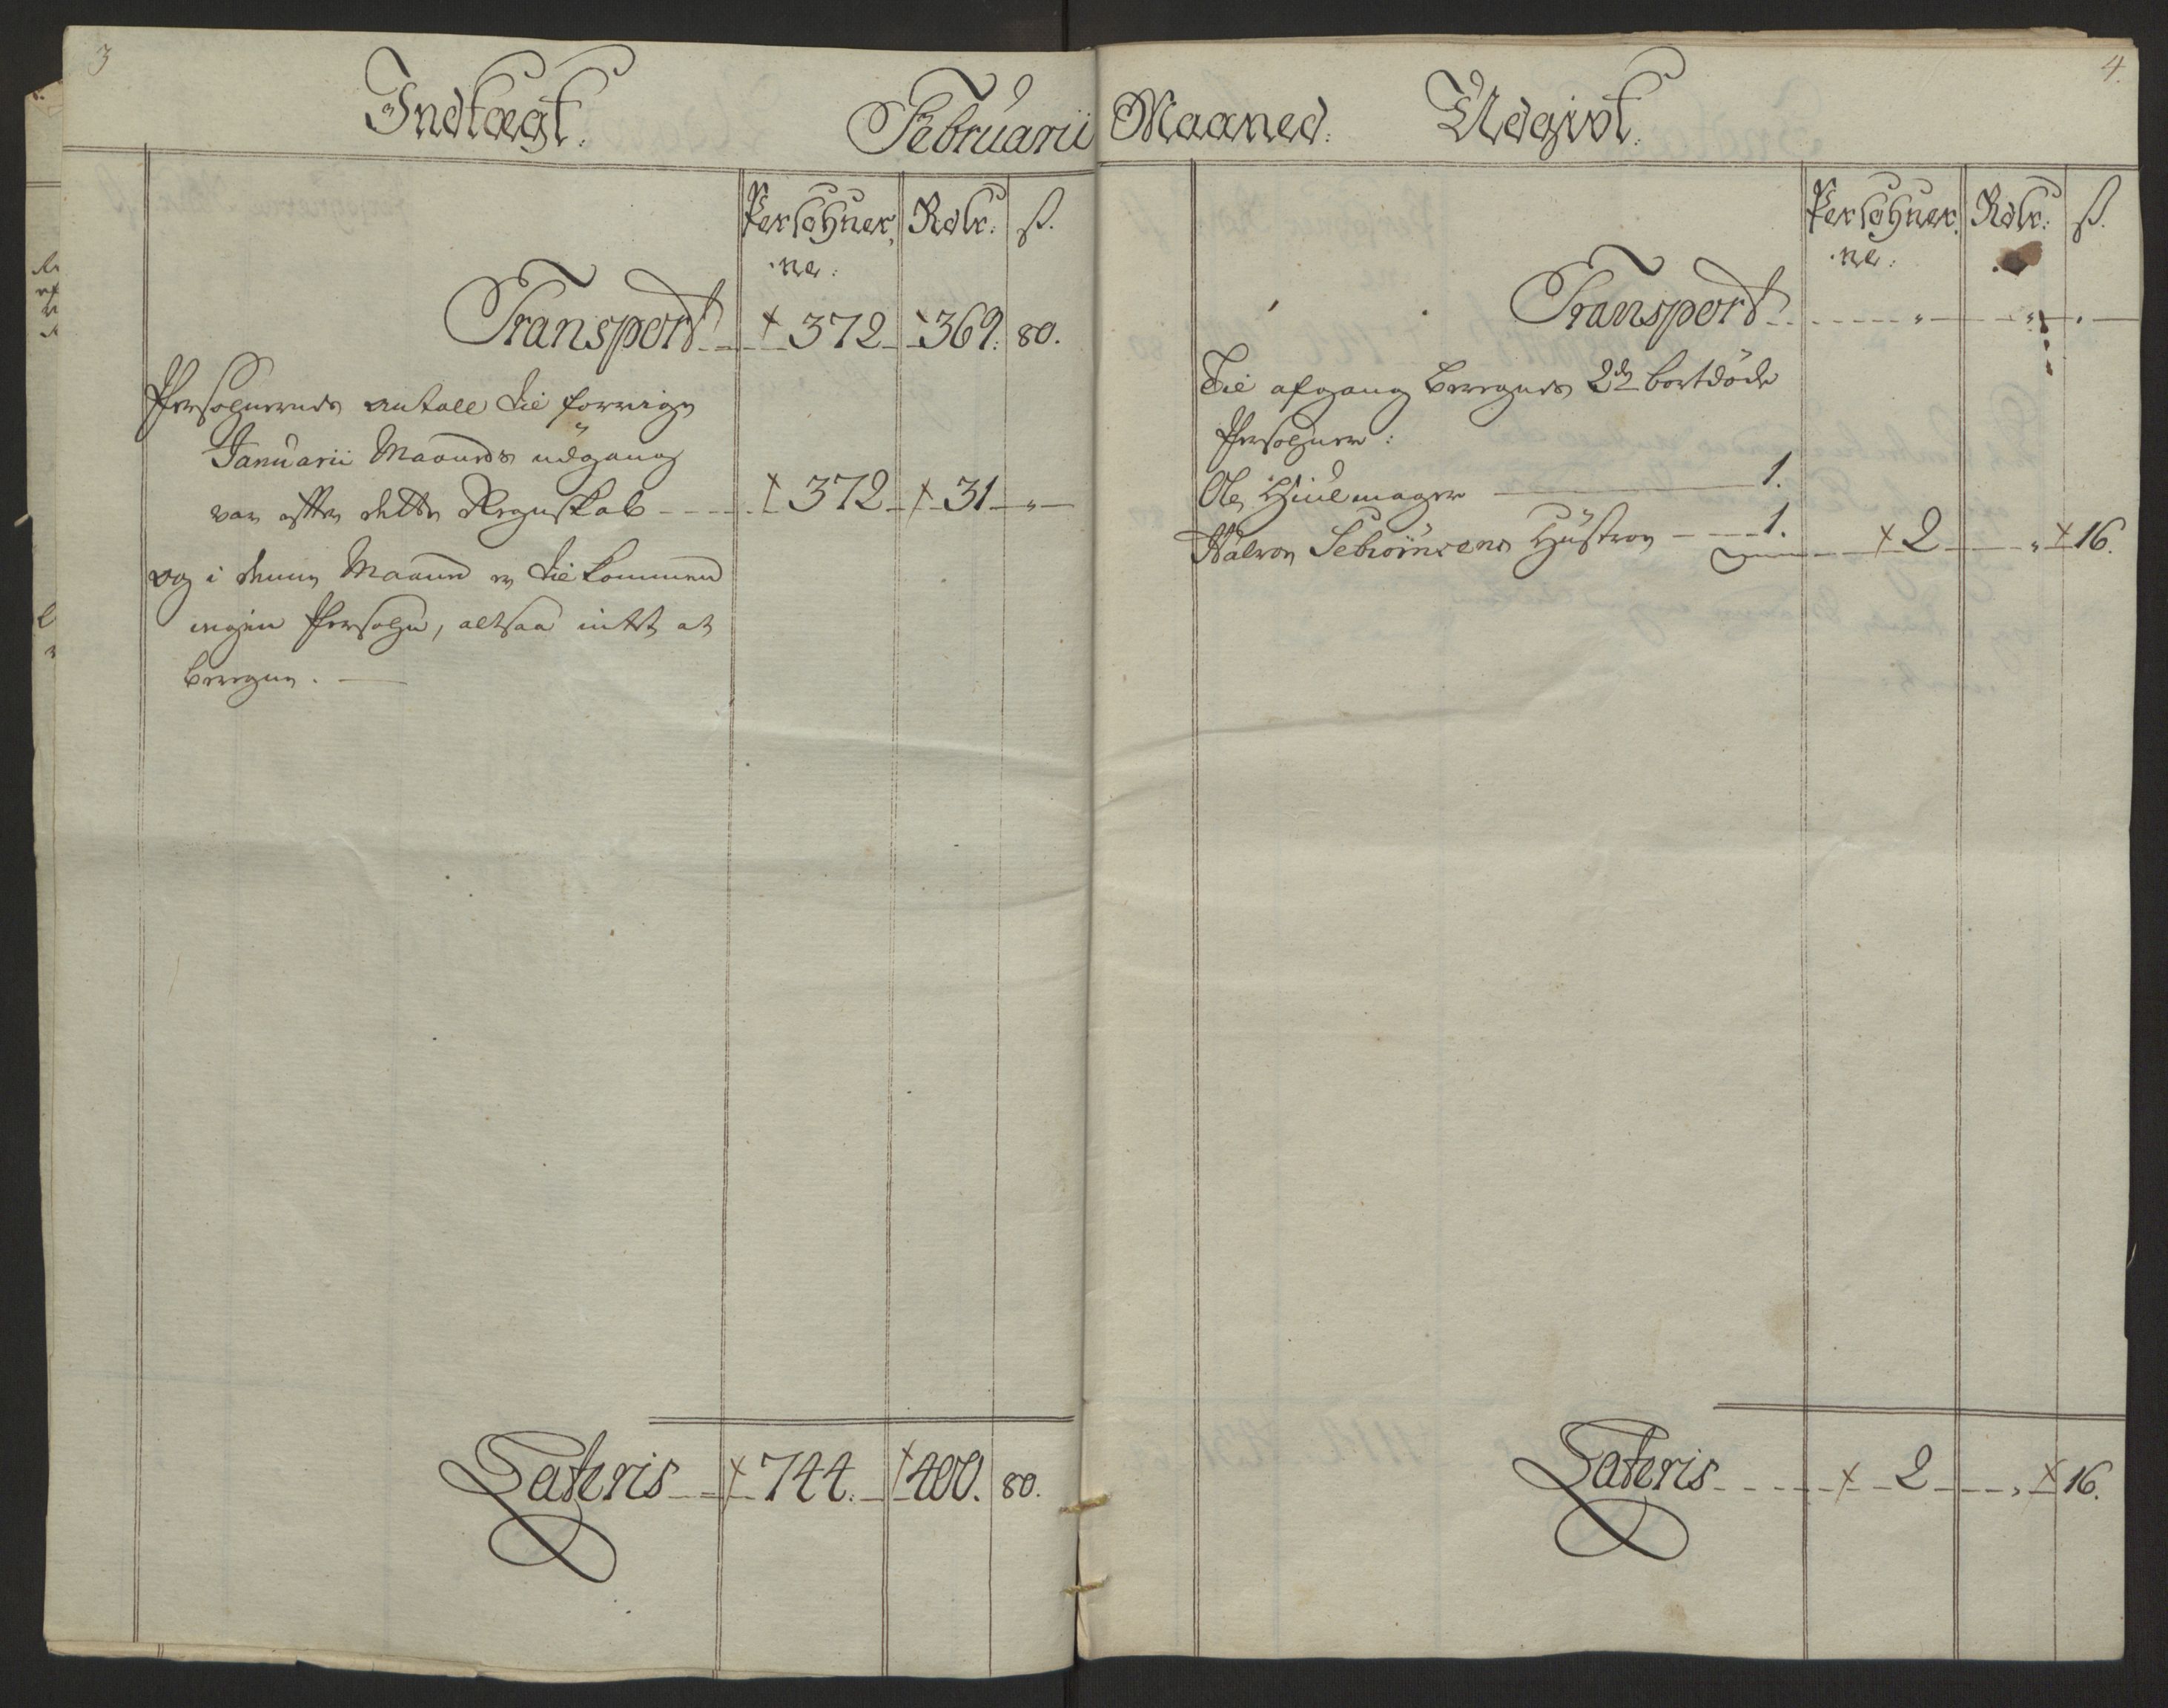 3
Indtægt.
Februarii
Persohner, Rdlr: ß.
ne:
Transport 372 369. 80.
Persohnernes antall til forrige
Januarii Maaneds udgang
var efter dette Regnskab 372 31 "
og i denne Maaned er tilkommen
ingen Persohn, altsaa intet at
beregne.
Lateris 744. 400. 80.
4.
Maaned. Udgivt.
Persohner, Rdlr: ß.
ne:
Transport " " "
Til afgang beregnes 2de bortdöde
Persohner:
Ole Hiulmager 1.
Halvor Hustroe 1. 2 " 16.
Lateris 2 " 16.